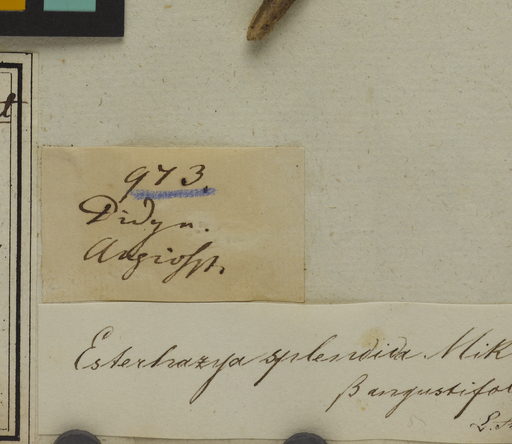 973.
Didyn.
Angiosp.
Esterhazya splendida Mik
β angustifol